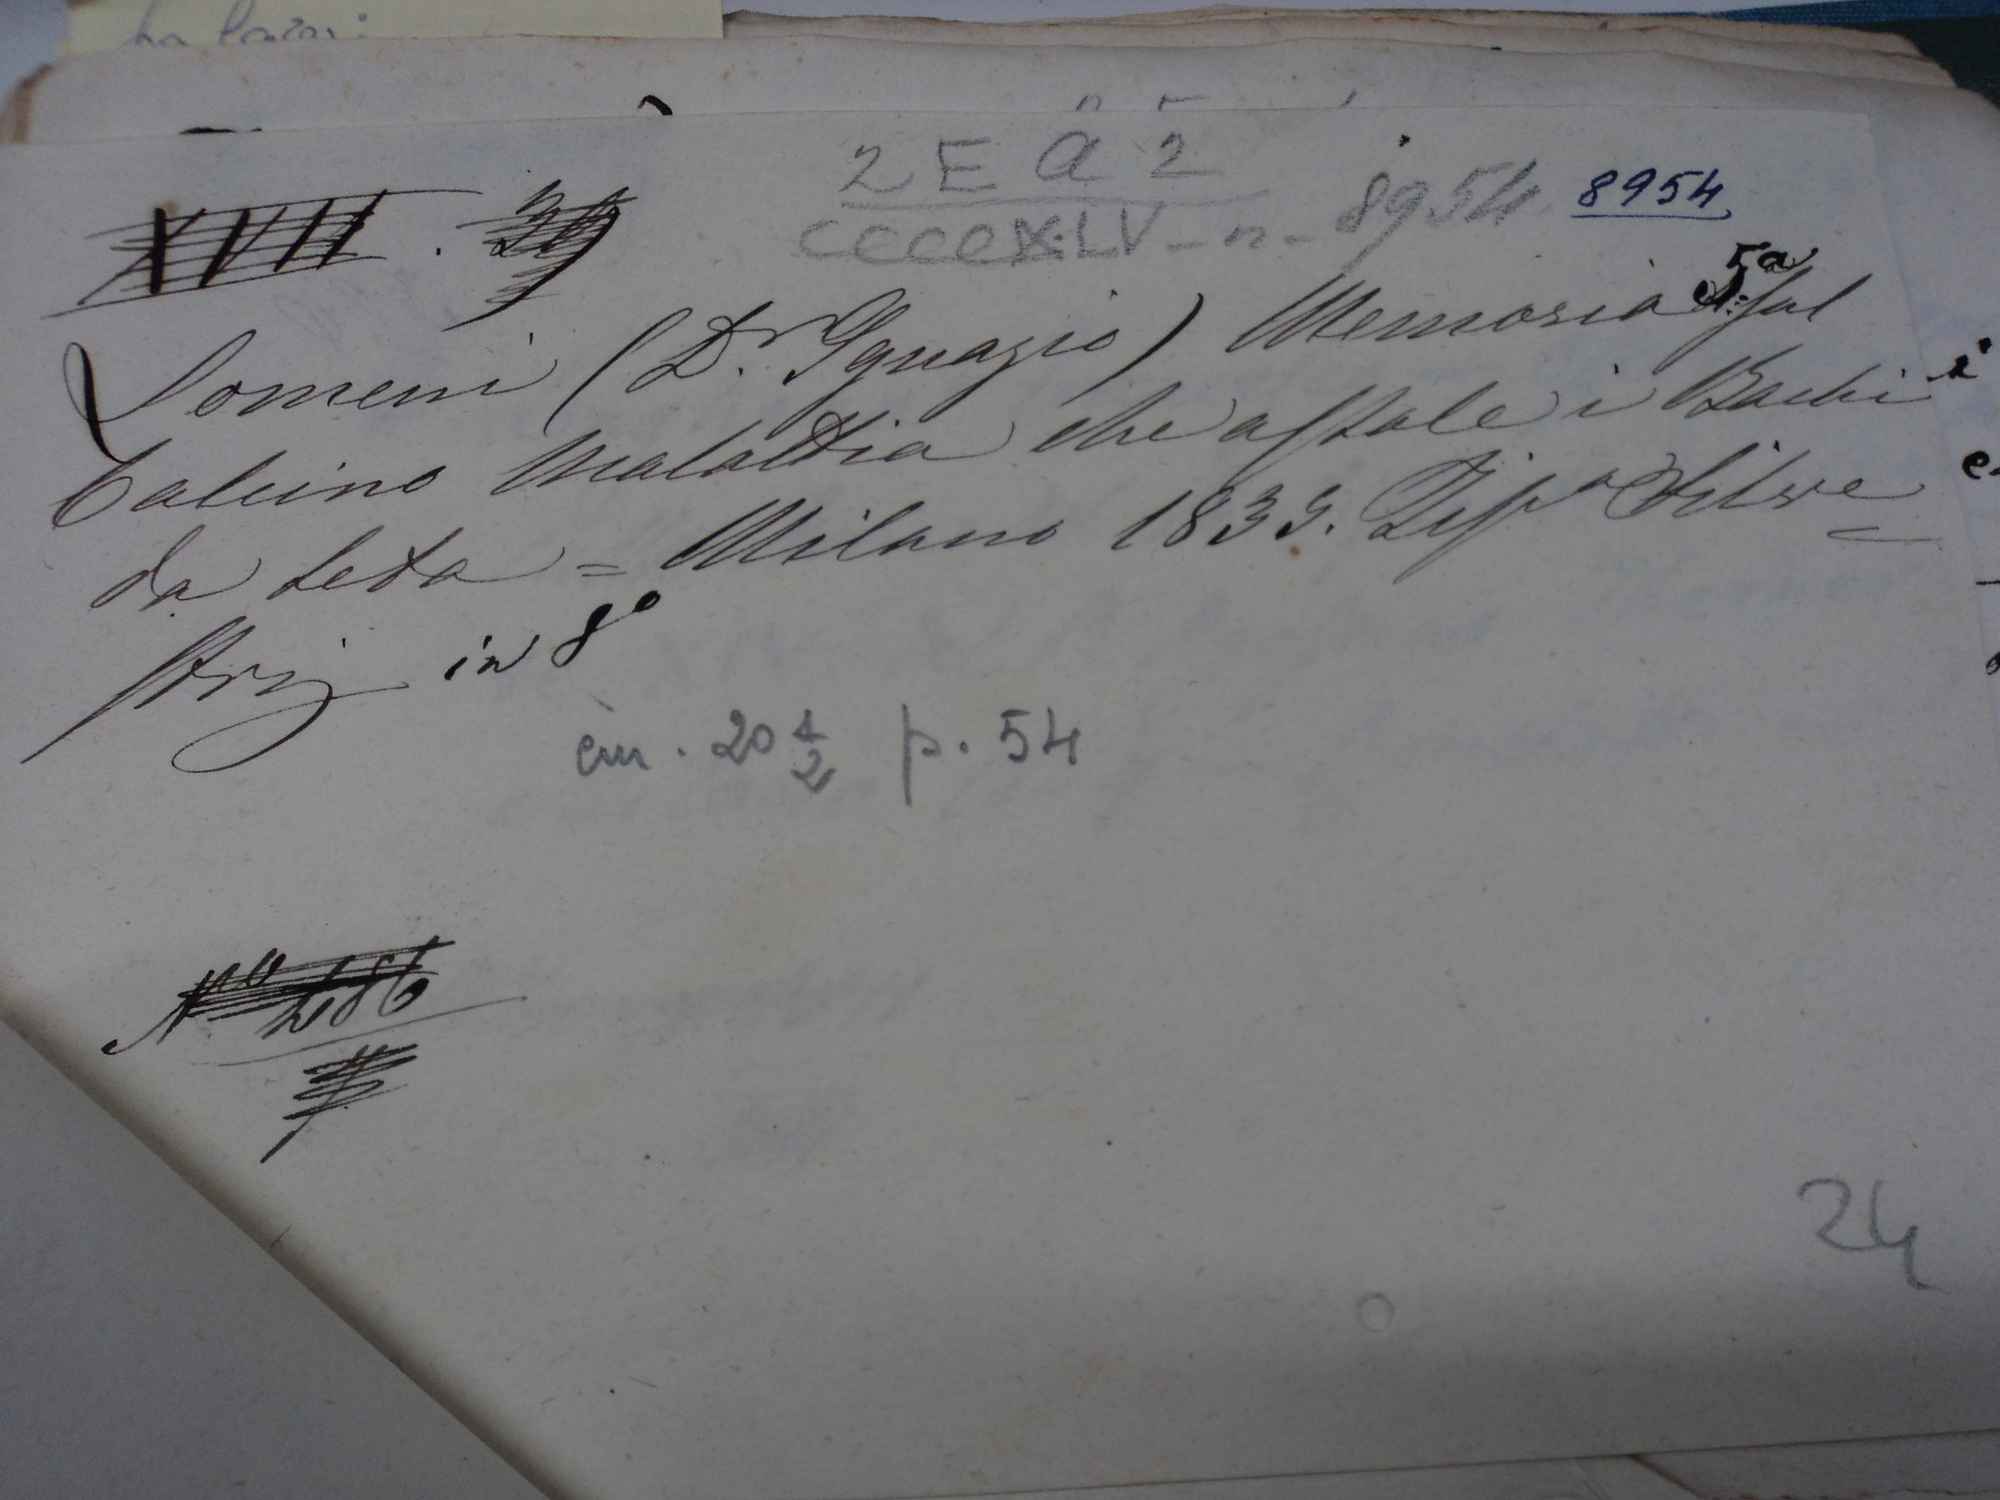 2 E a 2
XVII . 39
CCCCXLV - n - 8954 8954
Lomeni (Dr. Ignazio) Memoria 5a Sul
Calcino malattia che assale i Bachi
da seta = Milano 1833. Tip.a Silve=
strij in 8o
cm. 20 1/2 p. 54
No 286
24